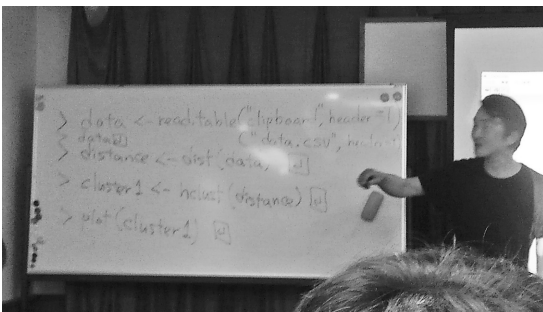 > data <- read.table("clipboard", header=T)
data ↵ ("data.csv", header=T)
> distance <- dist(data) ↵
> cluster1 <- hclust(distance) ↵
> plot(cluster1) ↵